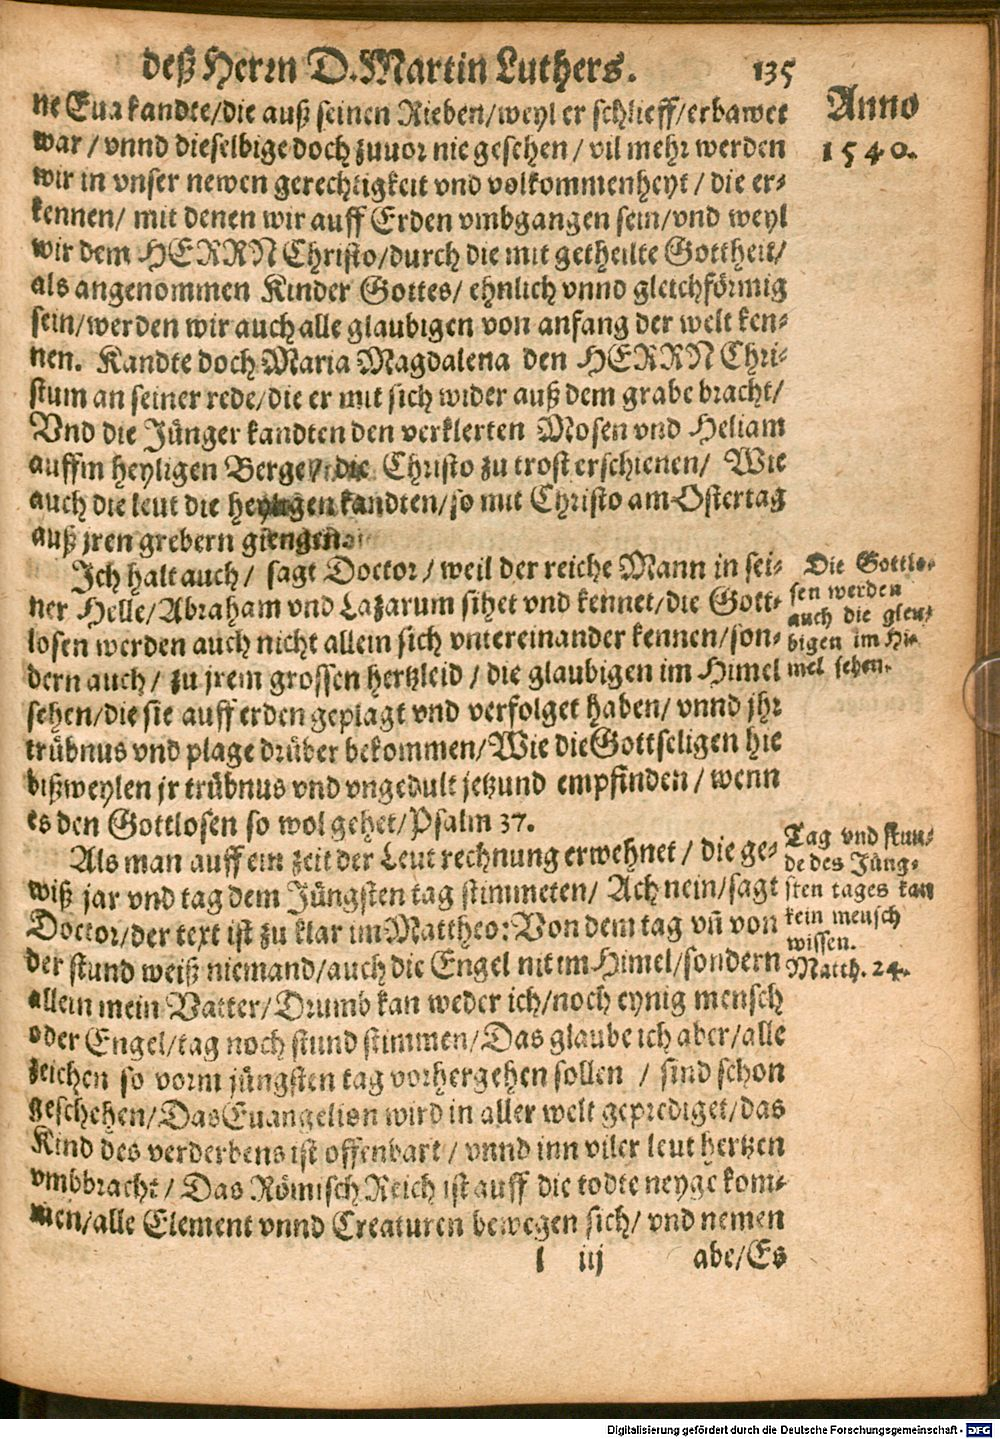 deß Herrn D. Martin Luthers. 135
Anno
1540.
ne Eua kandte/die auß seinen Rieben/weyl er schlieff/erbawet
war / vnnd dieselbige doch zuuor nie gesehen / vil mehr werden
wir in vnser newen gerechtigkeit vnd volkommenheyt / die er-
kennen/ mit denen wir auff Erden vmbgangen sein/vnd weyl
wir dem HERRN Christo/durch die mit getheilte Gottheit/
als angenommen Kinder Gottes/ ehnlich vnnd gleichförmig
sein/werden wir auch alle glaubigen von anfang der welt ken-
nen. Kandte doch Maria Magdalena den HERRN Chri-
stum an seiner rede/die er mit sich wider auß dem grabe bracht/
Vnd die Jünger kandten den verklerten Mosen vnd Heliam
auffm heyligen Berge/ die Christo zu trost erschienen/ Wie
auch die leut die heyligen kandten/so mit Christo am Ostertag
auß jren grebern giengen.
Ich halt auch/ sagt Doctor/ weil der reiche Mann in sei-
ner Helle/Abraham vnd Lazarum sihet vnd kennet/die Gott-
losen werden auch nicht allein sich vntereinander kennen/son-
dern auch/ zu jrem grossen hertzleid / die glaubigen im Himel
sehen/die sie auff erden geplagt vnd verfolget haben/ vnnd jhr
trübnus vnd plage drüber bekommen/Wie die Gottseligen hie
bißweylen jr trübnus vnd vngedult jetzund empfinden / wenn
es den Gottlosen so wol gehet/Psalm 37.
Die Gottlo-
sen werden
auch die gleu-
bigen im Hi-
mel sehen.
Als man auff ein zeit der Leut rechnung erwehnet / die ge-
wiß jar vnd tag dem Jüngsten tag stimmeten/ Ach nein/sagt
Doctor/der text ist zu klar im Mattheo: Von dem tag vñ von
der stund weiß niemand/auch die Engel nit im Himel/sondern
allein mein Vatter/Drumb kan weder ich/noch eynig mensch
oder Engel/tag noch stund stimmen/Das glaube ich aber/alle
zeichen so vorm jüngsten tag vorhergehen sollen / sind schon
geschehen/Das Euangelion wird in aller welt geprediget/das
Kind des verderbens ist offenbart / vnnd inn viler leut hertzen
vmbbracht/ Das Römisch Reich ist auff die todte neyge kom-
men/alle Element vnnd Creaturen bewegen sich/ vnd nemen
Tag vnd stun-
de des Jüng-
sten tages kan
kein mensch
wissen.
Matth. 24.
l iij abe/Es
Digitalisierung gefördert durch die Deutsche Forschungsgemeinschaft - DFG